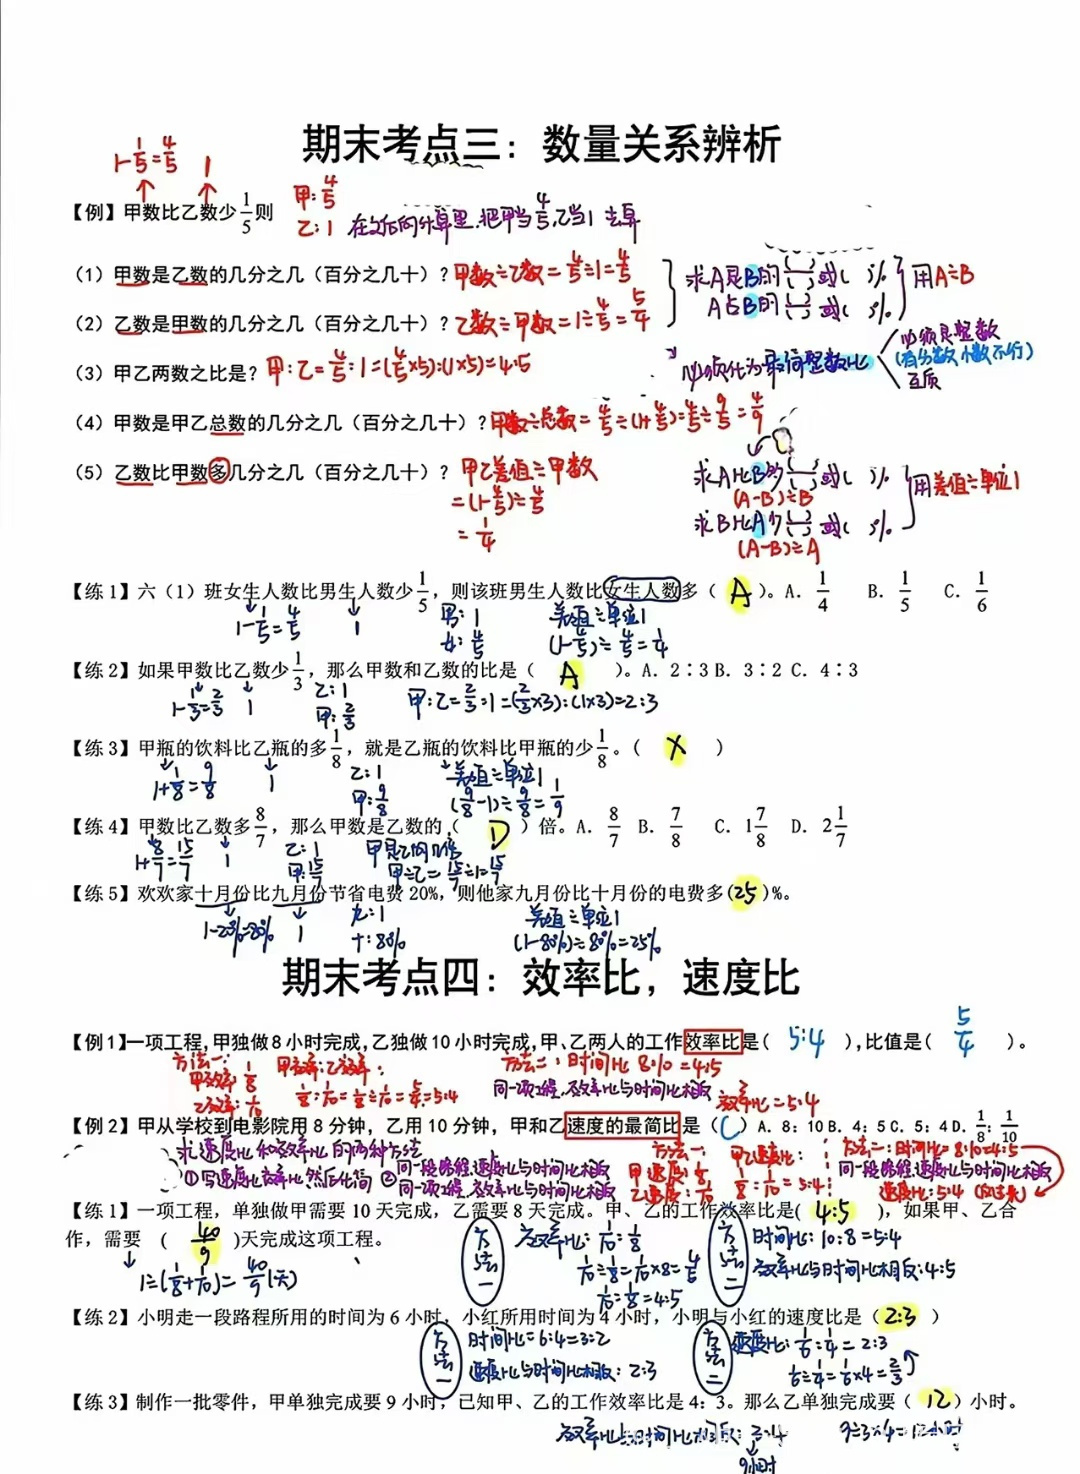 期末考点三：数量关系辨析
1-1/5=4/5 1
甲:4/5
乙:1
【例】甲数比乙数少1/5则
在之后的计算里，把甲当4/5，乙当1去算
（1）甲数是乙数的几分之几（百分之几十）？甲数÷乙数=4/5÷1=4/5
求A是B的( )/( )或( )%
A占B的( )/( )或( )%
用A÷B
（2）乙数是甲数的几分之几（百分之几十）？乙数÷甲数=1÷4/5=5/4
（3）甲乙两数之比是？甲:乙=4/5:1=(4/5×5):(1×5)=4:5
必须化为最简整数比
必须是整数
(有分数、小数不行)
互质
（4）甲数是甲乙总数的几分之几（百分之几十）？甲数÷总数=4/5÷(1+4/5)=4/5÷9/5=4/9
（5）乙数比甲数多几分之几（百分之几十）？甲乙差值÷甲数
=(1-4/5)÷4/5
=1/4
求A比B多( )/( )或( )%
(A-B)÷B
求B比A少( )/( )或( )%
(A-B)÷A
用差值÷单位1
【练1】六（1）班女生人数比男生人数少1/5，则该班男生人数比女生人数多（ A ）。A. 1/4 B. 1/5 C. 1/6
1-1/5=4/5 1
男:1
女:4/5
差值÷单位1
(1-4/5)÷4/5=1/4
【练2】如果甲数比乙数少1/3，那么甲数和乙数的比是（ A ）。A. 2∶3 B. 3∶2 C. 4∶3
1-1/3=2/3 1
乙:1
甲:2/3
甲:乙=2/3:1=(2/3×3):(1×3)=2:3
【练3】甲瓶的饮料比乙瓶的多1/8，就是乙瓶的饮料比甲瓶的少1/8。（ × ）
1+1/8=9/8 1
乙:1
甲:9/8
差值÷单位1
(9/8-1)÷9/8=1/9
【练4】甲数比乙数多8/7，那么甲数是乙数的（ D ）倍。A. 8/7 B. 7/8 C. 1 7/8 D. 2 1/7
1+8/7=15/7 1
乙:1
甲:15/7
甲是乙的几倍
甲÷乙=15/7÷1=15/7
【练5】欢欢家十月份比九月份节省电费20%，则他家九月份比十月份的电费多(25)%。
1-20%=80% 1
九:1
十:80%
差值÷单位1
(1-80%)÷80%=25%
期末考点四：效率比，速度比
【例1】一项工程，甲独做8小时完成，乙独做10小时完成，甲、乙两人的工作效率比是( 5:4 )，比值是( 5/4 )。
方法一:
甲效率:1/8
乙效率:1/10
甲效率:乙效率:
1/8:1/10=1/8÷1/10=5/4=5:4
方法二:时间比 8:10=4:5
同一项工程，效率比与时间比相反
效率比=5:4
【例2】甲从学校到电影院用8分钟，乙用10分钟，甲和乙速度的最简比是（C）A. 8：10 B. 4：5 C. 5：4 D. 1/8：1/10
求速度比和效率比的两种方法
①写速度比/效率比，然后化简 ②同一段路程，速度比与时间比相反
同一项工程，效率比与时间比相反
方法一:
甲速度:1/8
乙速度:1/10
甲乙速度比:
1/8:1/10=5:4
方法二:时间比=8:10=4:5
同一段路程，速度比与时间比相反
速度比:5:4 (反过来)
【练1】一项工程，单独做甲需要10天完成，乙需要8天完成。甲、乙的工作效率比是( 4:5 )，如果甲、乙合
作，需要 ( 40/9 )天完成这项工程。
1÷(1/8+1/10)=40/9(天)
方法一
效率比:1/10:1/8
1/10÷1/8=1/10×8=4/5
1/10:1/8=4:5
方法二
时间比:10:8=5:4
效率比与时间比相反:4:5
【练2】小明走一段路程所用的时间为6小时，小红所用时间为4小时，小明与小红的速度比是（2:3 ）
方法一
时间比=6:4=3:2
速度比与时间比相反:2:3
方法二
速度比:1/6:1/4=2:3
1/6÷1/4=1/6×4=2/3
【练3】制作一批零件，甲单独完成要9小时，已知甲、乙的工作效率比是4：3。那么乙单独完成要（ 12 ）小时。
效率比与时间比相反 3:4
9÷3×4=12小时
9小时